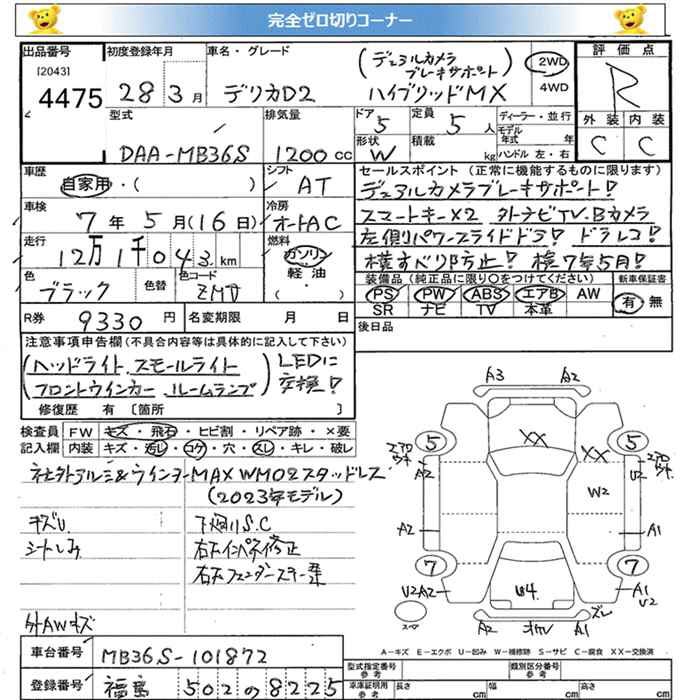 完全ゼロ切りコーナー
出品番号
[2043]
4475
初度登録年月
28 3月
車名・グレード
デリカD2
(デュアルカメラ
ブレーキサポート)
ハイブリッドMX
2WD
4WD
評価点
R
外装 内装
C C
型式
DAA-MB36S
排気量
1200 cc
ドア
5
定員
5 人
形状
W
積載
kg
ディーラー・並行
モデル
年式 年
ハンドル 左・右
車歴
自家用・( )
シフト
AT
車検
7年5月(16日)
冷房
オートAC
走行
12万1千043 km
燃料
ガソリン
軽・油
( )
色
ブラック
色替
色コード
ZMV
R券
9330 円
名変期限 月 日
セールスポイント (正常に機能するものに限ります)
デュアルカメラブレーキサポート!
スマートキーX2 外ナビTV.Bカメラ
左側パワースライドドア! ドラレコ!
横すべり防止! 検7年5月!
装備品 (純正品に限り○をつけてください)
新車保証書
PS PW ABS エアB AW
SR ナビ TV 本革
有・無
後日品
注意事項申告欄 (不具合内容等は具体的に記入して下さい)
(ヘッドライト.スモールライト
フロントウインカー.ルームランプ)
LEDに
交換!
修復歴 有 [箇所 ]
検査員
記入欄
FW キズ・飛石・ヒビ割・リペア跡・×要
内装 キズ・汚レ・コゲ・穴・スレ・キレ・破レ
社外アルミ&ウインターMAX WM02スタッドレス
(2023年モデル)
キズU.
シートしみ
下廻りS.C
右Fインパネ修正
外AWキズ
A3 A2
XX
XX
5
5
A2
U2
W2
A2
A1
7
7
U2A2
A1
U2
W4
ズレ
スペア
A2
A1
A-キズ E-エクボ U-凹み W-補修跡 S-サビ C-腐食 XX-交換済
車台番号
MB36S-101872
登録番号
福島 502 の 8225
型式指定番号
参考
類別区分番号
参考
車庫証明用
参考
長さ cm
幅 cm
高さ cm